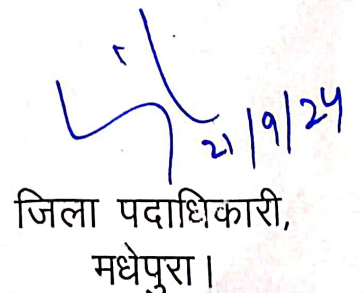 21/9/24
जिला पदाधिकारी,
मधेपुरा।